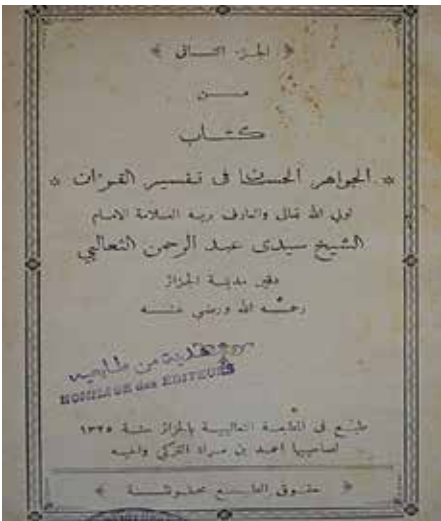 ﴿ الجزء الثاني ﴾
من
كتاب
الجواهر الحسان فى تفسير القرءان
لولي الله تعالى والعارف بربه العلامة الامام
الشيخ سيدى عبد الرحمن الثعالبي
دفين مدينة الجزائر
رحمه الله ورضي عنـه
هدية من طابعيه
HOMMAGE des EDITEURS
طبع فى المطبعة الثعالبية بالجزائر سنة ١٣٢٥
لصاحبها احمد بن مراد التركي واخيه
﴿ حقوق الطبع محفوظة ﴾